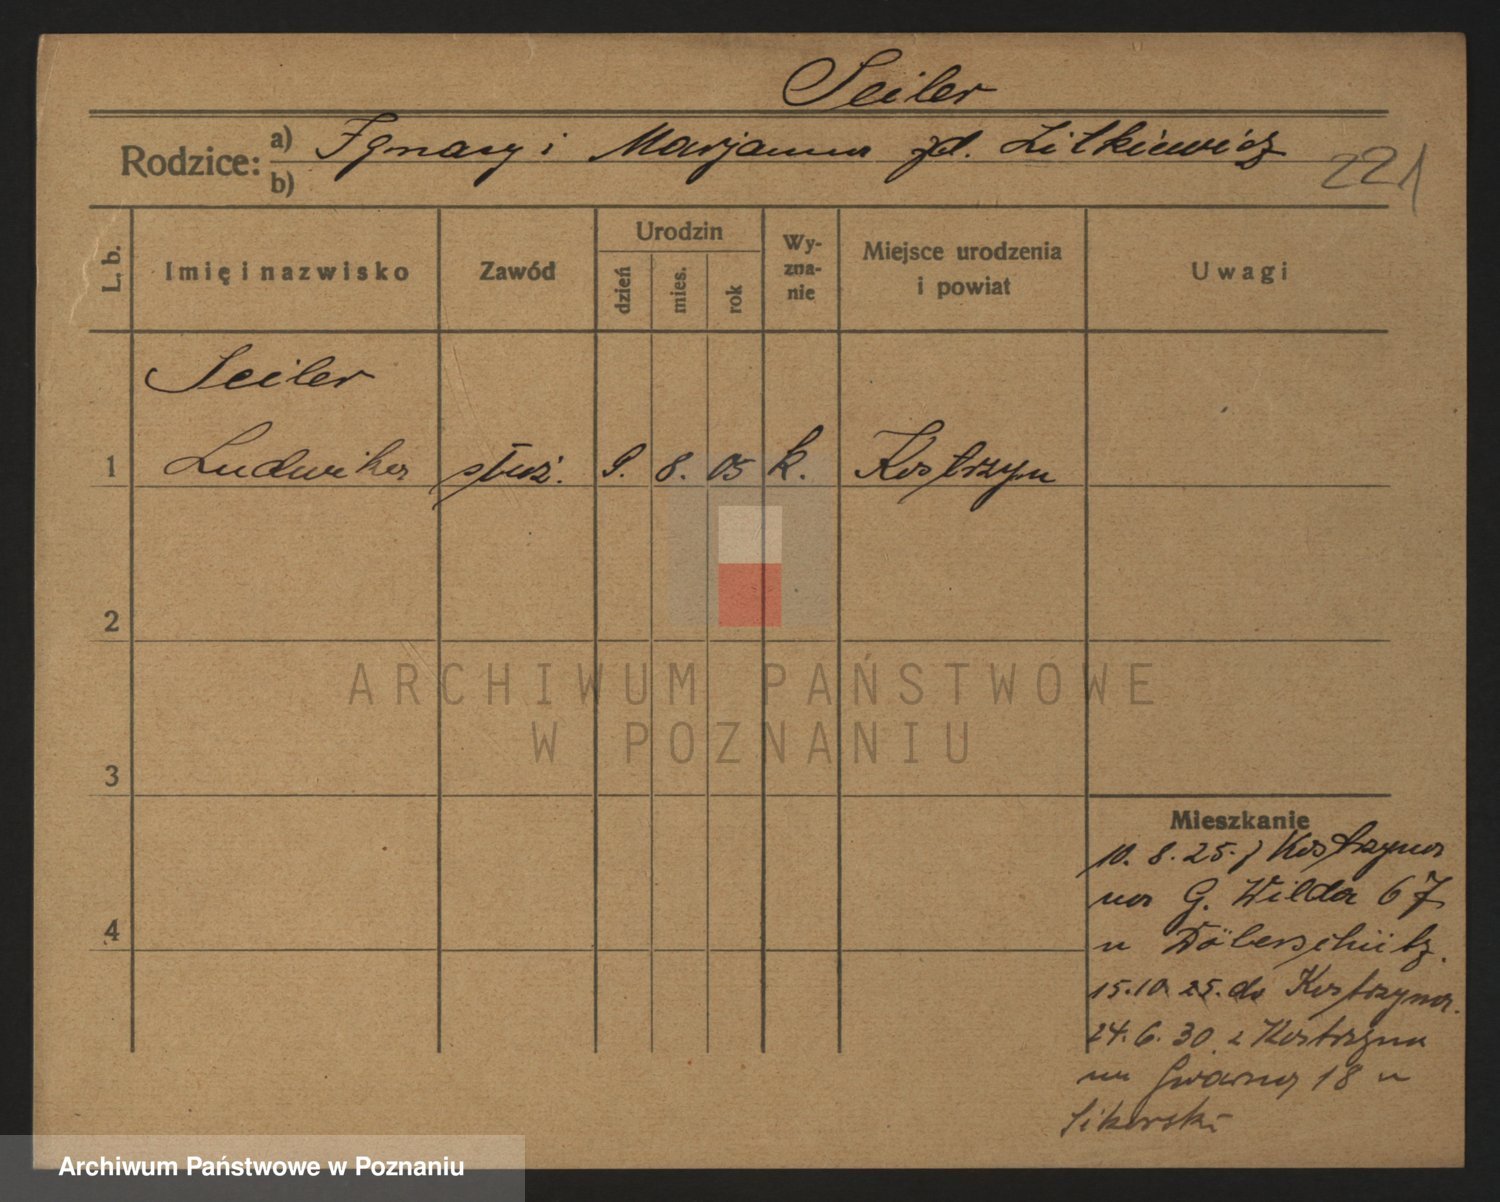 Seiler
Rodzice: a) Ignacy i Marjanna zd. Litkiewicz
b)
221
L. b.
Imię i nazwisko
Zawód
Urodzin
dzień
mies.
rok
Wy-
zna-
nie
Miejsce urodzenia
i powiat
Uwagi
Seiler
1 Ludwika służ. 9. 8. 05 k. Kostrzyn
2
3
4
ARCHIWUM PAŃSTWOWE
W POZNANIU
Mieszkanie
10. 8. 25. z Kostrzyna
na G. Wilda 67
u Döberschütz.
15.10.25. do Kostrzyna.
24.6.30. z Kostrzyna
na Gwarną 18 u
Sikorski
Archiwum Państwowe w Poznaniu